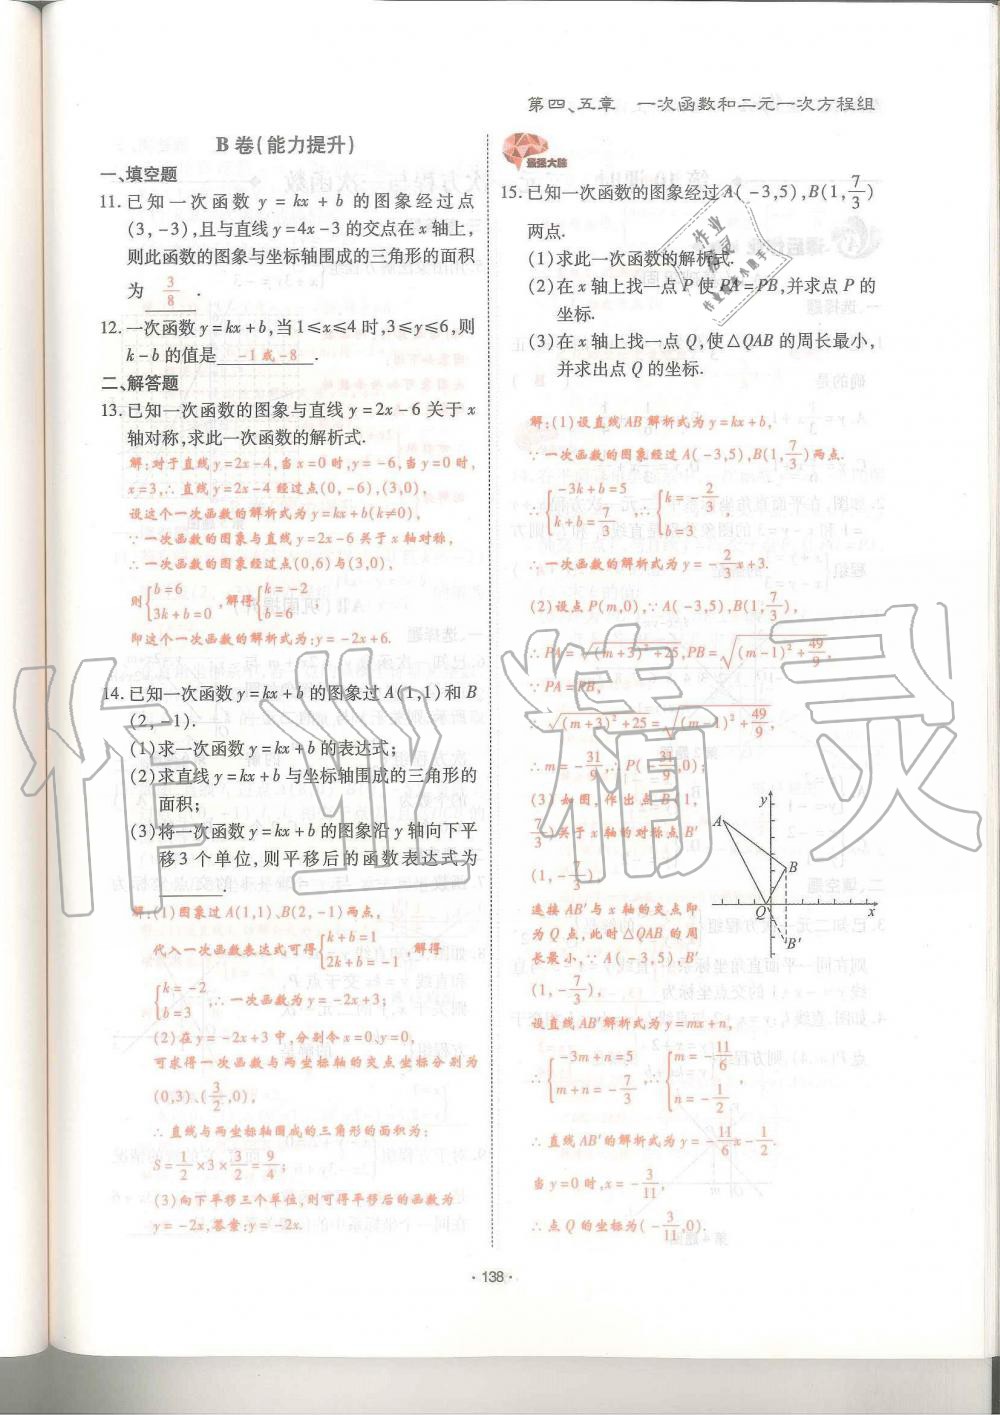 第四、五章　一次函数和二元一次方程组
B 卷(能力提升)
一、填空题
11. 已知一次函数 y = kx + b 的图象经过点
(3, -3),且与直线 y=4x-3 的交点在 x 轴上,
则此函数的图象与坐标轴围成的三角形的面积
为 3/8 .
12. 一次函数 y=kx+b,当 1≤x≤4 时,3≤y≤6,则
k-b 的值是 -1 或 -8 .
二、解答题
13. 已知一次函数的图象与直线 y=2x-6 关于 x
轴对称,求此一次函数的解析式.
解:对于直线 y=2x-4,当 x=0 时,y=-6,当 y=0 时,
x=3,∴直线 y=2x-4 经过点(0,-6),(3,0),
设这个一次函数的解析式为 y=kx+b(k≠0),
∵一次函数的图象与直线 y=2x-6 关于 x 轴对称,
∴一次函数的图象经过点(0,6)与(3,0),
则{b=6 3k+b=0,解得{k=-2 b=6;
即这个一次函数的解析式为:y=-2x+6.
14. 已知一次函数 y=kx+b 的图象过 A(1,1)和 B
(2,-1).
(1)求一次函数 y=kx+b 的表达式;
(2)求直线 y=kx+b 与坐标轴围成的三角形的
面积;
(3)将一次函数 y=kx+b 的图象沿 y 轴向下平
移3个单位,则平移后的函数表达式为
.
解:(1)图象过 A(1,1)、B(2,-1)两点,
代入一次函数表达式可得{k+b=1 2k+b=-1,解得
{k=-2 b=3;∴一次函数为 y=-2x+3;
(2)在 y=-2x+3 中,分别令 x=0、y=0,
可求得一次函数与两坐标轴的交点坐标分别为
(0,3)、(3/2,0),
∴直线与两坐标轴围成的三角形的面积为:
S=1/2×3×3/2=9/4;
(3)向下平移三个单位,则可得平移后的函数为
y=-2x,答案:y=-2x.
最强大脑
15. 已知一次函数的图象经过 A(-3,5),B(1,7/3)
两点.
(1)求此一次函数的解析式.
(2)在 x 轴上找一点 P 使 PA=PB,并求点 P 的
坐标.
(3)在 x 轴上找一点 Q,使△QAB 的周长最小,
并求出点 Q 的坐标.
解:(1)设直线 AB 解析式为 y=kx+b,
∵一次函数的图象经过 A(-3,5),B(1,7/3)两点.
∴{-3k+b=5 k+b=7/3,∴{k=-2/3 b=3
∴一次函数的解析式为 y=-2/3x+3.
(2)设点 P(m,0),∵A(-3,5),B(1,7/3),
∴PA=√(m+3)²+25,PB=√(m-1)²+49/9,
∵PA=PB,
∴√(m+3)²+25=√(m-1)²+49/9,
∴m=-31/9,∴P(-31/9,0);
(3)如图,作出点 B(1,
7/3)关于 x 轴的对称点 B′
(1,-7/3)
连接 AB′与 x 轴的交点即
为 Q 点,此时△QAB 的周
长最小,∵A(-3,5),B′
(1,-7/3),
设直线 AB′解析式为 y=mx+n,
∴{-3m+n=5 m+n=-7/3,∴{m=-11/6 n=-1/2.
∴直线 AB′的解析式为 y=-11/6x-1/2.
当 y=0 时,x=-3/11,
∴点 Q 的坐标为(-3/11,0).
y
A
B
Q
x
B′
作业精灵
· 138 ·